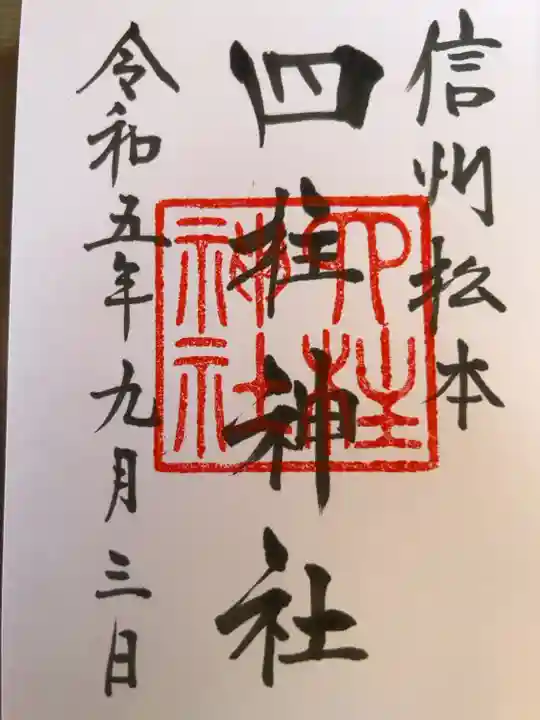 信州松本
四柱神社
四柱
神社
令和五年九月三日